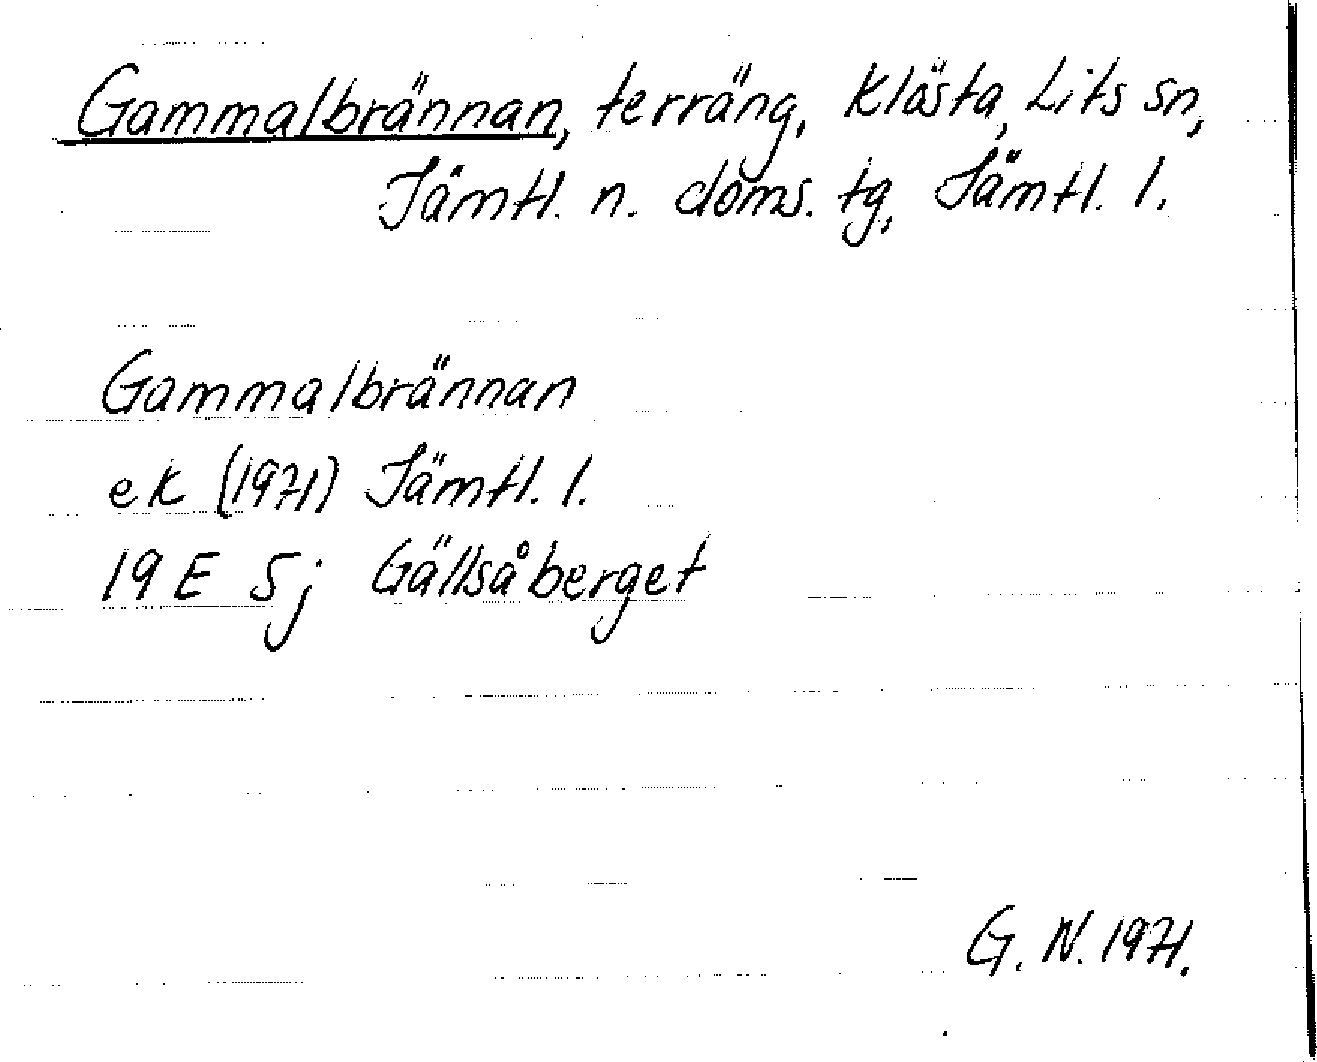 Gammalbrännan, terräng, Klösta, Lits sn,
Jämtl. n. doms. tg, Jämtl. l.
Gammalbrännan
ek (1971) Jämtl. l.
19 E 5j Gällsåberget
G. N. 1971.